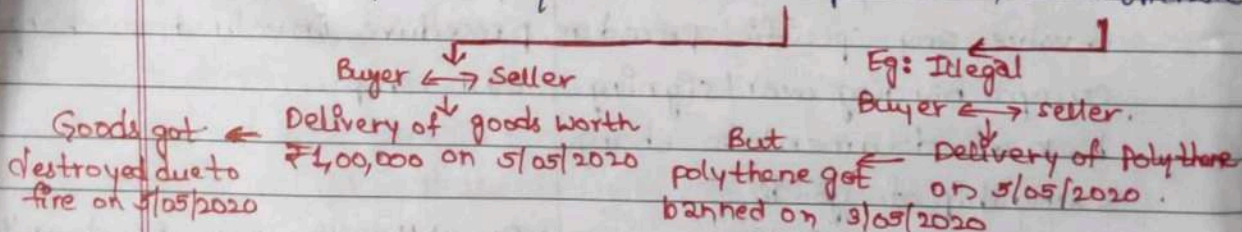 Buyer ↔ Seller
Delivery of goods worth
₹1,00,000 on 5/05/2020
Goods got ←
destroyed due to
fire on /05/2020
Eg: Illegal
Buyer ↔ seller.
Delivery of Polythene
on 5/05/2020.
But ←
polythene got
banned on 3/05/2020